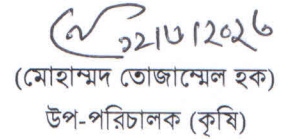 ১২/৩/২০২৩
(মোহাম্মদ তোজাম্মেল হক)
উপ-পরিচালক (কৃষি)